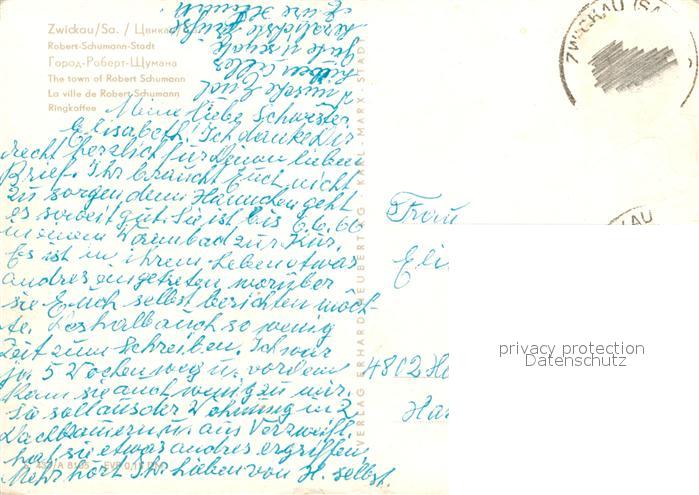 Zwickau/Sa. / Цвикау
Robert-Schumann-Stadt
Город-Роберт-Шумана
The town of Robert Schumann
La ville de Robert Schumann
Ringkaffee
Meine liebe Schwester
Elisabeth! Ich danke Dir
recht herzlich für Deinen lieben
Brief. Ihr braucht Euch nicht
zu sorgen denn Hannchen geht
es soweit gut. Sie ist bis 6.6.66
in einem bad zur Kur.
Es ist in ihrem Leben etwas
andres eingetreten worüber
sie Euch selbst berichten möch-
te. Deshalb auch so wenig
Zeit zum Schreiben. Ich war
ja 5 Wochen weg u. vordem
kam sie auch wenig zu mir.
Sie soll aus der Wohnung in 2
Dachkammern u. aus Verzweifl.
hat sie etwas andres ergriffen,
Mehr hört Ihr Lieben von H. selbst.
wünsche Euch
lieben alles
Gute
herzlichste Grüße
Eure
437/A 8185 EVP 0,10 DM
VERLAG ERHARD NEUBERT KG · KARL-MARX-STADT
ZWICKAU (SA
KAU
Frau
Eli
4802 Ha
Ha
privacy protection
Datenschutz